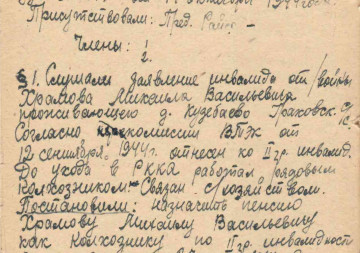 от 11 октября 1944 года
Присутствовали: Пред. Райсо –
Члены: 1.
2.
§ 1. Слушали заявление инвалида от/войны
Храмова Михаила Васильевича
проживающего д. Кузебаево Граховск.
Согласно комиссии ВТЭК от
12 сентября 1944 г. отнесен ко II гр. инвалид.
До ухода в РККА работал рядовым
Колхозником. Связан с/хозяйством.
Постановили: назначить пенсию
Храмову Михаилу Васильевичу
как Колхознику по II гр. инвалидност